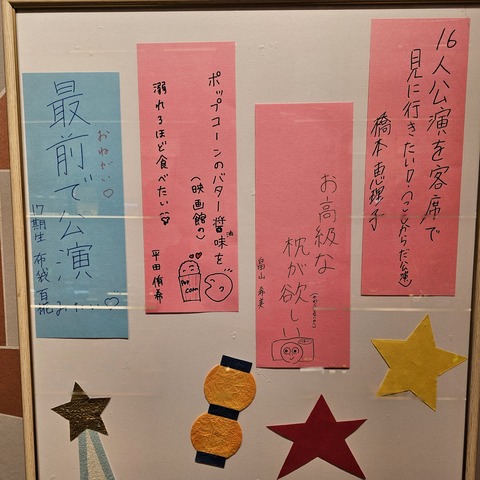 16人公演を客席で
見に行きたい!
橋本恵理子
お高級な
枕が欲しい
畠山希美
ポップコーンのバター醤油味を
(映画館の)
溺れるほど食べたい
平田侑希
POP
CORN
おねがい♡
最前で公演
みたい♡
17期生 布袋百花